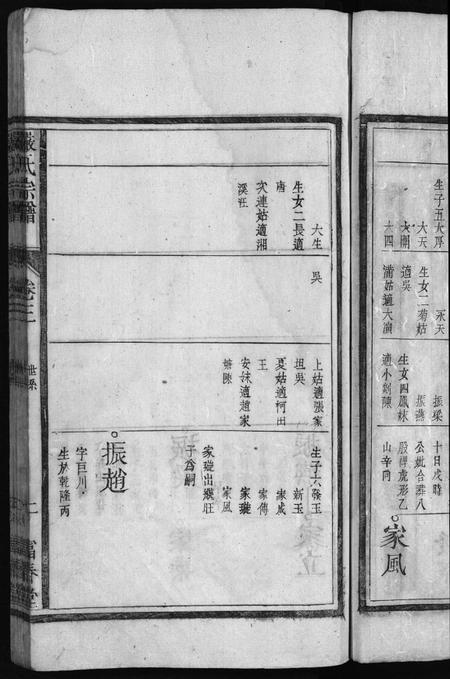 生子五大厚
大天
大開
大四
永天
生女二菊姑
適吳
滿姑適大演
振梁
振燕
生女四鳳妹
適小劍陳
十日戌時
公妣合葬八
股輝虎形乙
山辛向
家風
大生
生女二長適
唐
次連姑適湘
溪汪
吳
上姑適張家
坦吳
夏姑適柯田
王
安妹適趙家
塘陳
生子六發玉
新玉
家成
家傳
家璇
家風
家璇出繼旺
子為嗣
振趙
字巨川
生於乾隆丙
嚴氏宗譜
卷三
世系
二
富春堂